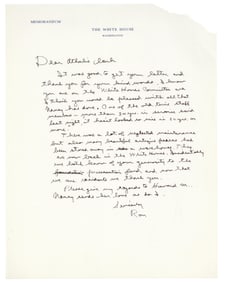 MEMORANDUM
THE WHITE HOUSE
WASHINGTON
Dear Athalie Clark
It was good to get your letter and
thank you for your kind words. I know
you are on the "White House Committee" and
I think you would be pleased with all that
Nancy has done. One of the old time staff
members – more than 30 years in service said
last night it hasn't looked so nice in 30 yrs. or
more.
There was a lot of neglected maintenance
but also many beautiful antique pieces had
been stored away in a warehouse. They
are now back in the White House. Incidentally
we both know of your generosity to the
preservation fund, and now that
we are residents we thank you.
Please give my regards to
Nancy sends her love as do I.
Sincerely
Ron